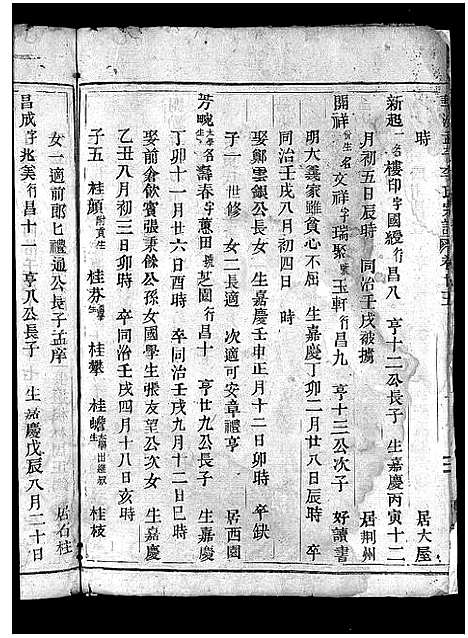 時　居大屋
新起一名樓印字國綬行昌八　亨十二公長子　生嘉慶丙寅十二
月初五日辰時　同治壬戌被擄　居荆州
開祥貢生名文祥字瑞聚號玉軒行昌九　亨十三公次子　好讀書
明大義家雖貧心不屈　生嘉慶丁卯二月廿八日辰時　卒
同治壬戌八月初四日　時
娶鄭雲銀公長女　生嘉慶壬申正月十二日卯時　卒缺
子一　修生　女二長適　次適可安章禮亨　居西園
芳畹太學生名壽春字蕙田號芝園行昌十　亨廿九公長子　生嘉慶
丁卯十一月廿六日酉時　卒同治壬戌九月十二日巳時
娶前倉飲賓張秉餘公孫女國學生張友望公次女　生嘉慶
乙丑八月初三日卯時　卒同治壬戌四月十八日亥時
子五　桂頠附貢生　桂芬　桂攀　桂蟾太學生出繼叔　桂枝
女一適前郎匕禮通公長子孟庠　居石柱
昌成字兆美行昌十一　亨八公長子　生嘉慶戊辰八月二十日